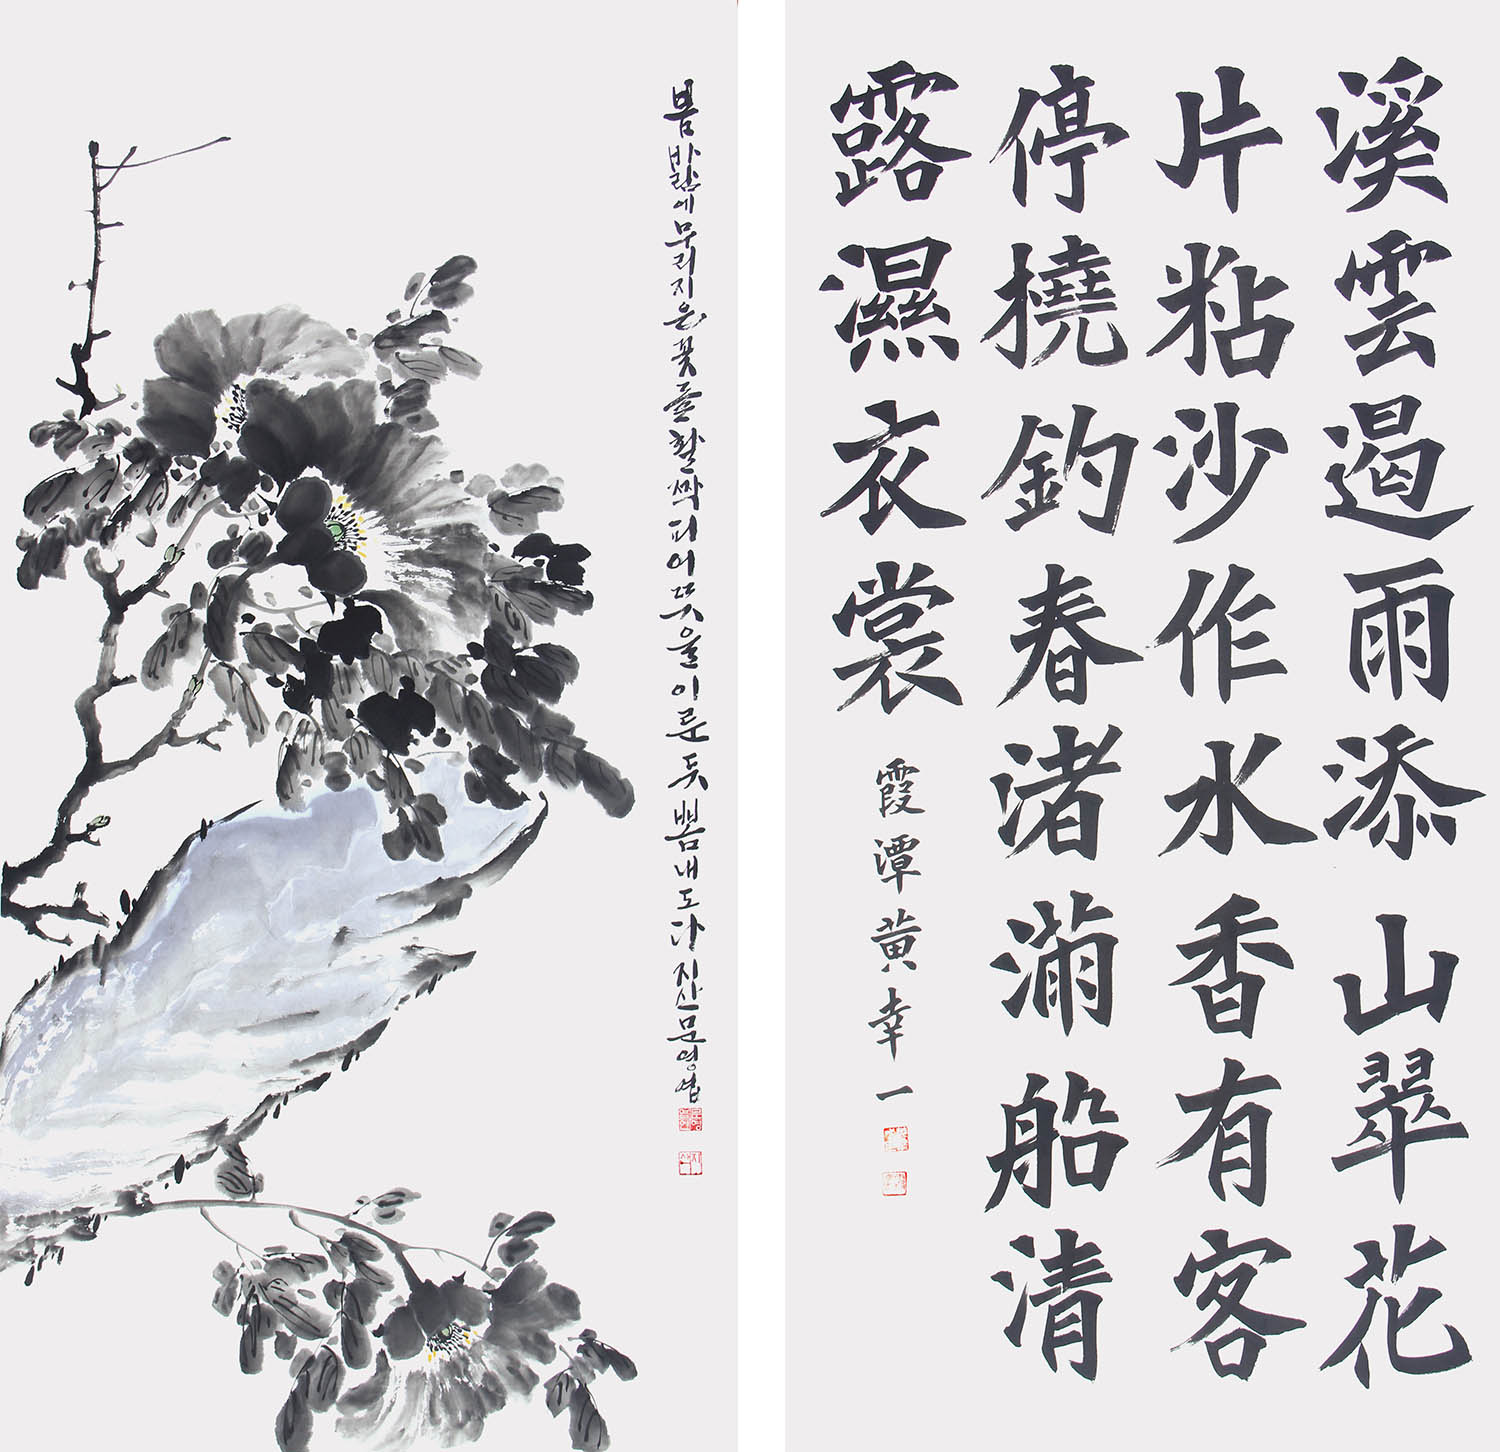 봄바람에 무리지은 꽃들 활짝 피어 뜻을 이룬 듯 뽐내도다 지산 문영섭
溪雲遏雨添山翠花
片粘沙作水香有客
停橈釣春渚滿船清
露濕衣裳
霞潭黃幸一